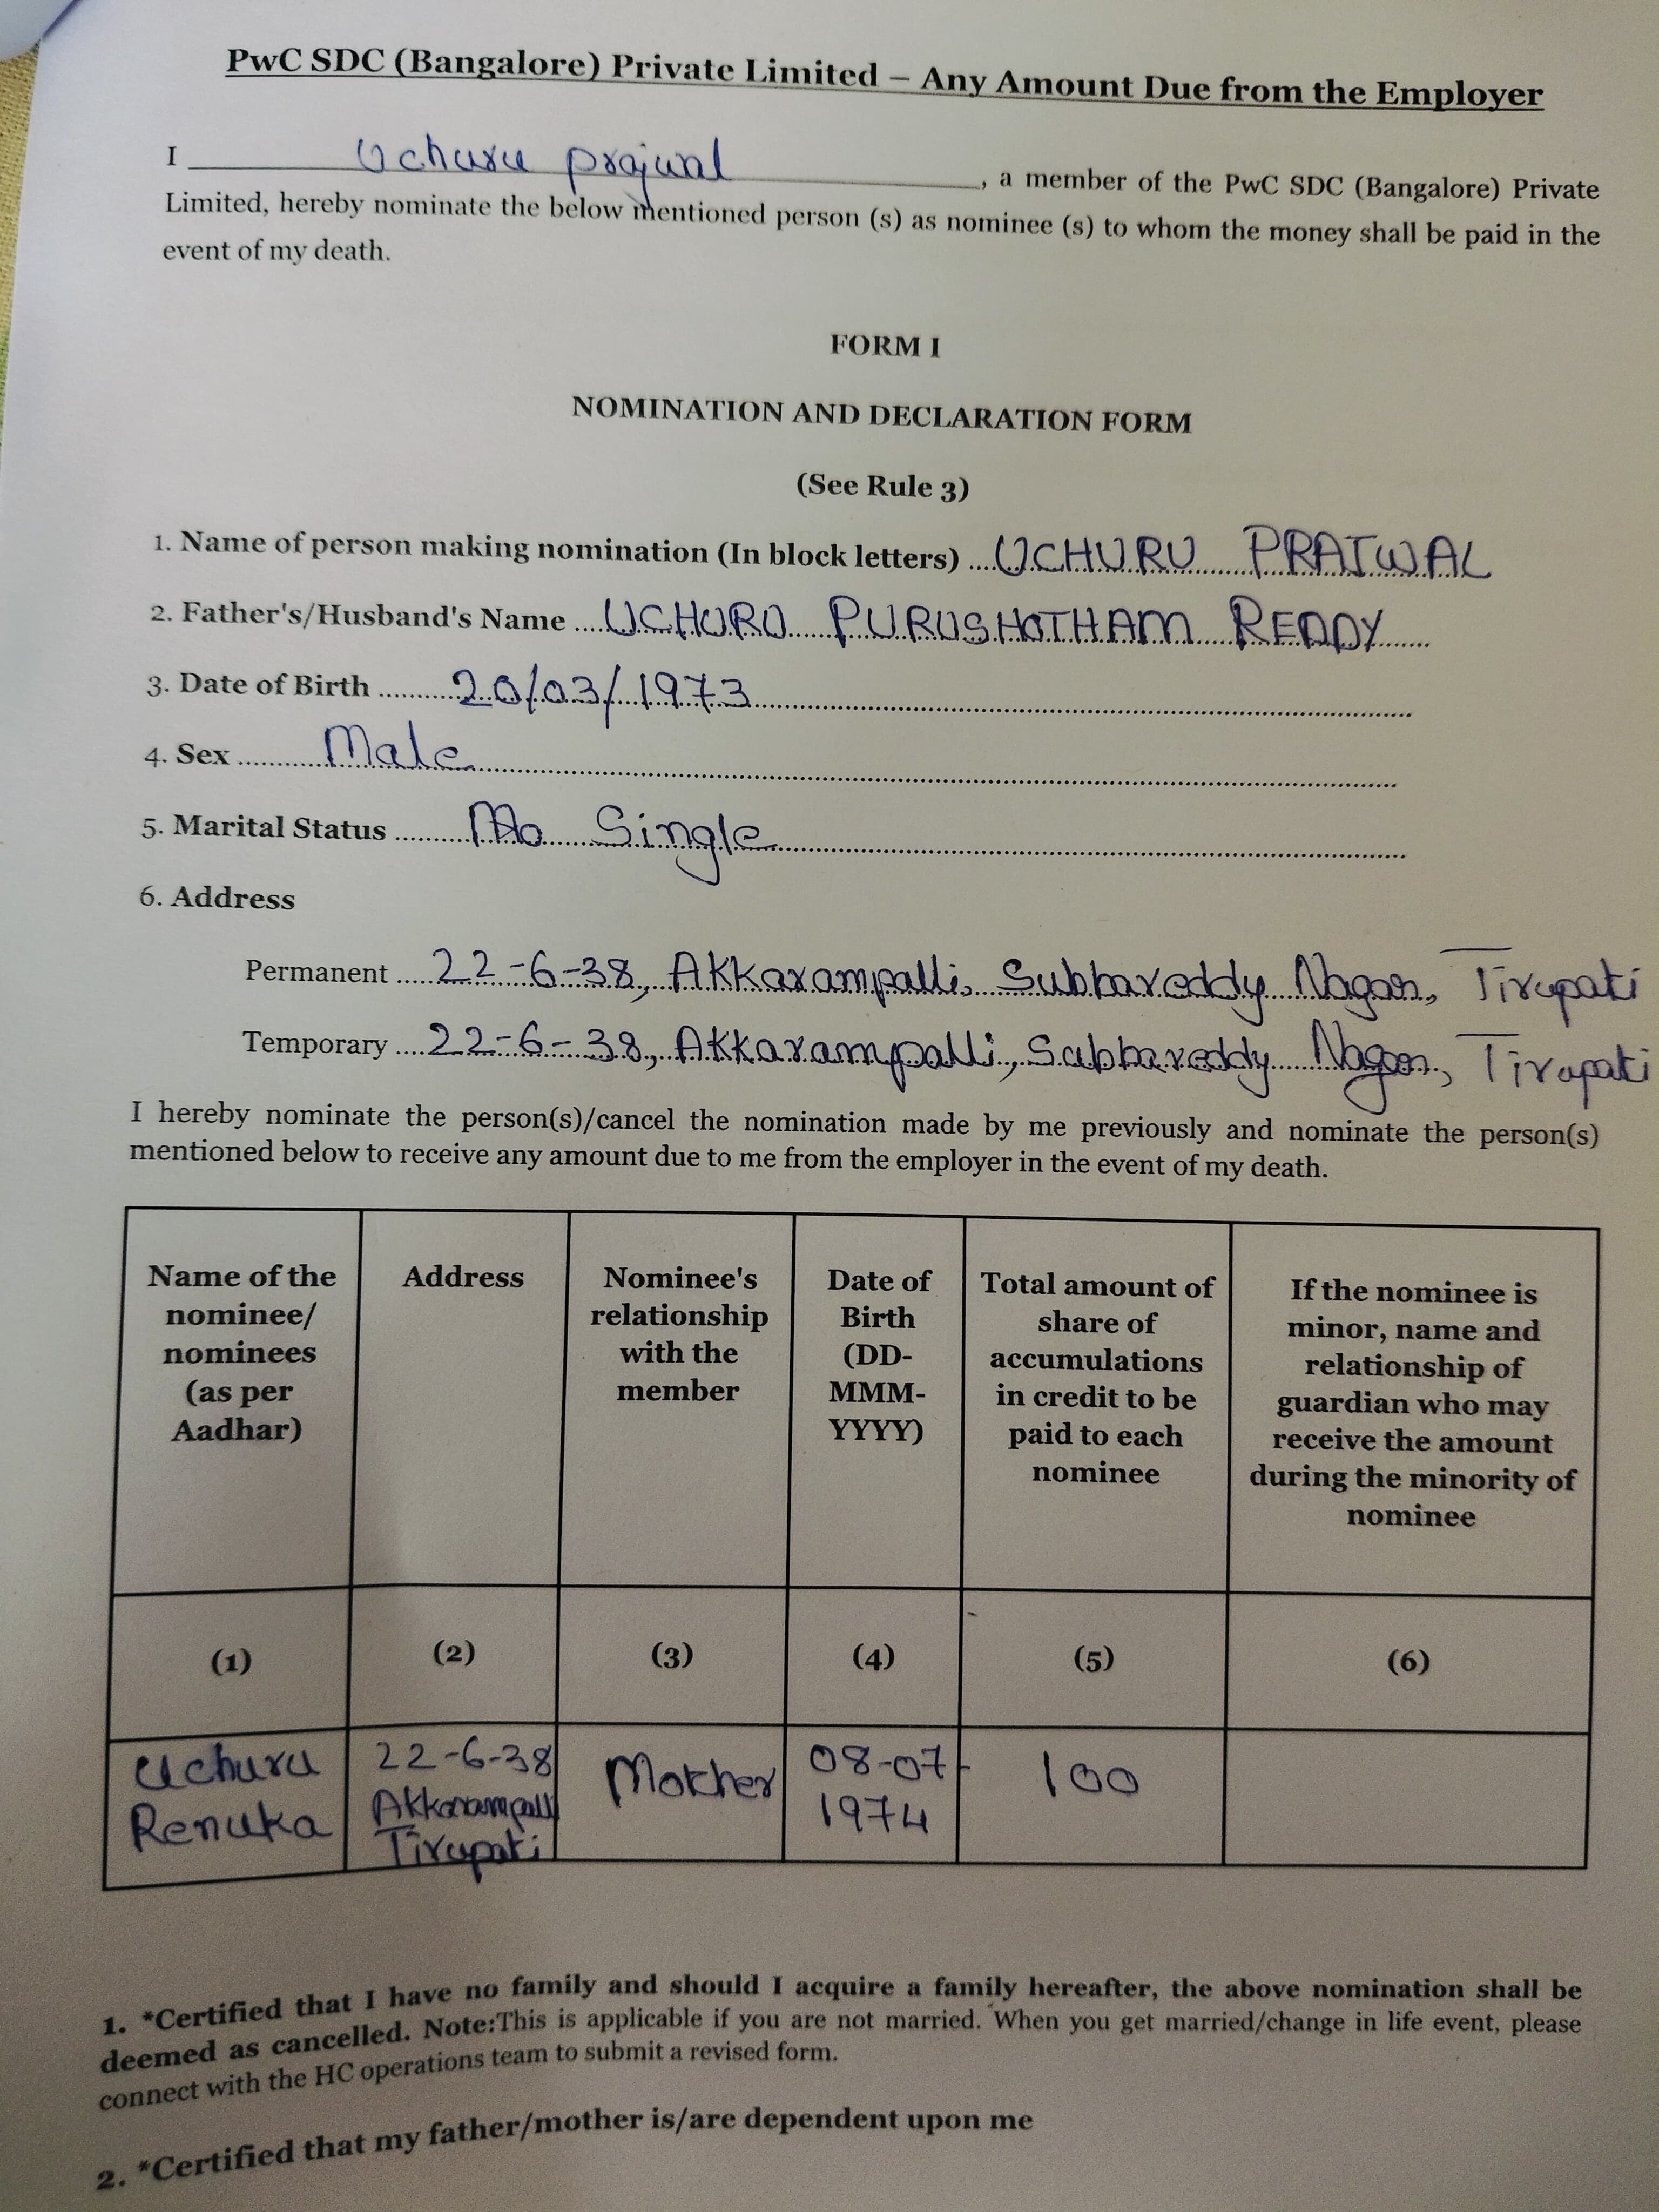 PwC SDC (Bangalore) Private Limited – Any Amount Due from the Employer
I Uchuru prajwal, a member of the PwC SDC (Bangalore) Private
Limited, hereby nominate the below mentioned person (s) as nominee (s) to whom the money shall be paid in the
event of my death.
FORM I
NOMINATION AND DECLARATION FORM
(See Rule 3)
1. Name of person making nomination (In block letters) ...UCHURU PRAJWAL
2. Father's/Husband's Name ....UCHURU PURUSHOTHAM REDDY
3. Date of Birth ..........20/03/1973
4. Sex ...........Male
5. Marital Status ......... Single
6. Address
Permanent ....22-6-38, Akkarampalli, Subbareddy Nagar, Tirupati
Temporary ....22-6-38, Akkarampalli, Subbareddy Nagar, Tirupati
I hereby nominate the person(s)/cancel the nomination made by me previously and nominate the person(s)
mentioned below to receive any amount due to me from the employer in the event of my death.
Name of the
nominee/
nominees
(as per
Aadhar)
Address
Nominee's
relationship
with the
member
Date of
Birth
(DD-
MMM-
YYYY)
Total amount of
share of
accumulations
in credit to be
paid to each
nominee
If the nominee is
minor, name and
relationship of
guardian who may
receive the amount
during the minority of
nominee
(1) (2) (3) (4) (5) (6)
Uchuru
Renuka
22-6-38
Akkarampalli
Tirupati
Mother
08-07-
1974
100
1. *Certified that I have no family and should I acquire a family hereafter, the above nomination shall be
deemed as cancelled. Note:This is applicable if you are not married. When you get married/change in life event, please
connect with the HC operations team to submit a revised form.
2. *Certified that my father/mother is/are dependent upon me